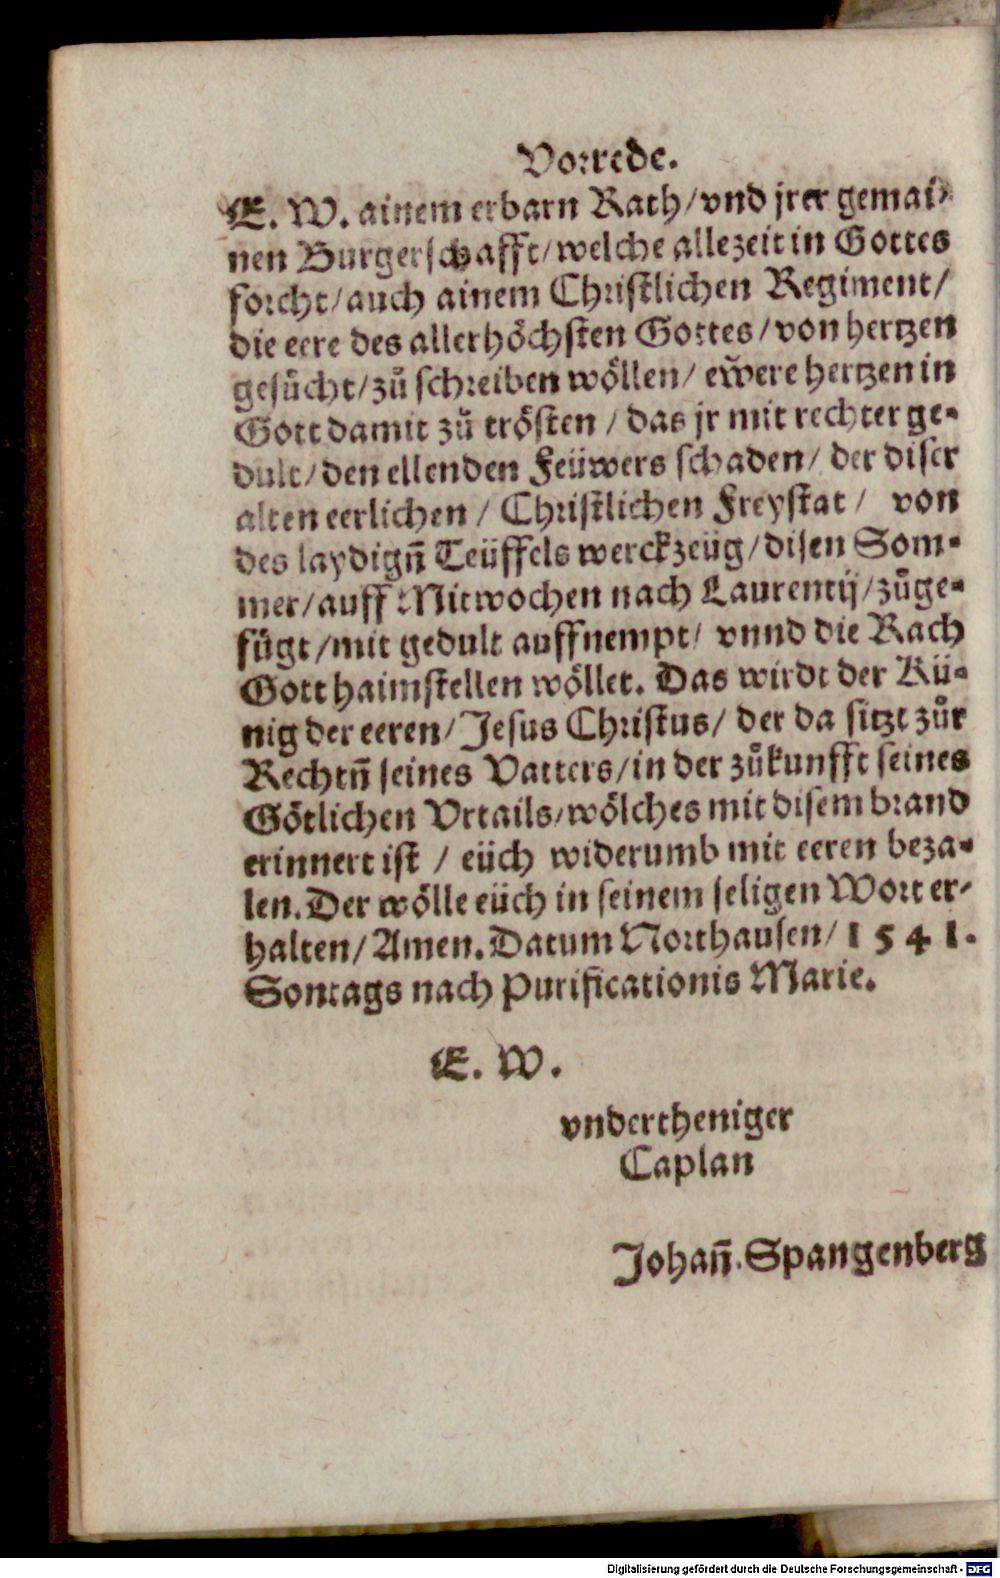 Vorrede.
E. W. ainem erbarn Rath/vnd jrer gemai⸗
nen Burgerschafft/welche allezeit in Gottes
forcht/auch ainem Christlichen Regiment/
die eere des allerhöchsten Gottes/von hertzen
gesůcht/zů schreiben wöllen/ ew̃ere hertzen in
Gott damit zů trösten / das jr mit rechter ge⸗
dult/den ellenden Feüwers schaden/ der diser
alten eerlichen / Christlichen Freystat / von
des laydigñ Teüffels werckzeüg/disen Som⸗
mer/auff Mitwochen nach Laurentij/zůge⸗
fügt/mit gedult auffnempt/ vnnd die Rach
Gott haimstellen wöllet. Das wirdt der Kü⸗
nig der eeren/Jesus Christus/ der da sitzt zůr
Rechtñ seines Vatters/in der zůkunfft seines
Götlichen Vrtails/wölches mit disem brand
erinnert ist / eüch widerumb mit eeren beza⸗
len. Der wölle eüch in seinem seligen Wort er⸗
halten/Amen. Datum Northausen/1541.
Sontags nach Purificationis Marie.
E. W.
vndertheniger
Caplan
Johañ. Spangenberg
Digitalisierung gefördert durch die Deutsche Forschungsgemeinschaft - DFG